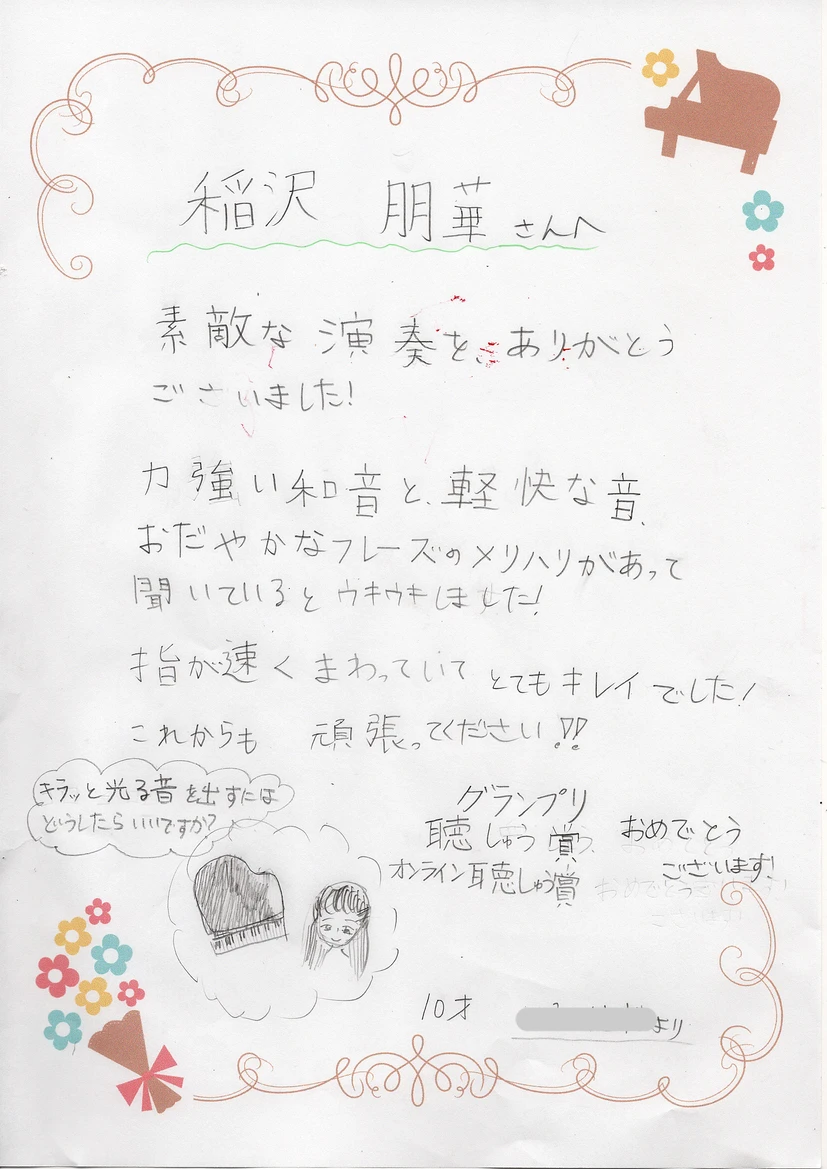 稲沢 朋華さんへ
素敵な演奏を、ありがとう
ございました!
力強い和音と、軽快な音、
おだやかなフレーズのメリハリがあって
聞いているとウキウキしました!
指が速くまわっていてとてもキレイでした!
これからも 頑張ってください!!
キラッと光る音を出すには
どうしたらいいですか?
グランプリ
聴しゅう賞 おめでとう
オンライン聴しゅう賞 ございます!
10才
より